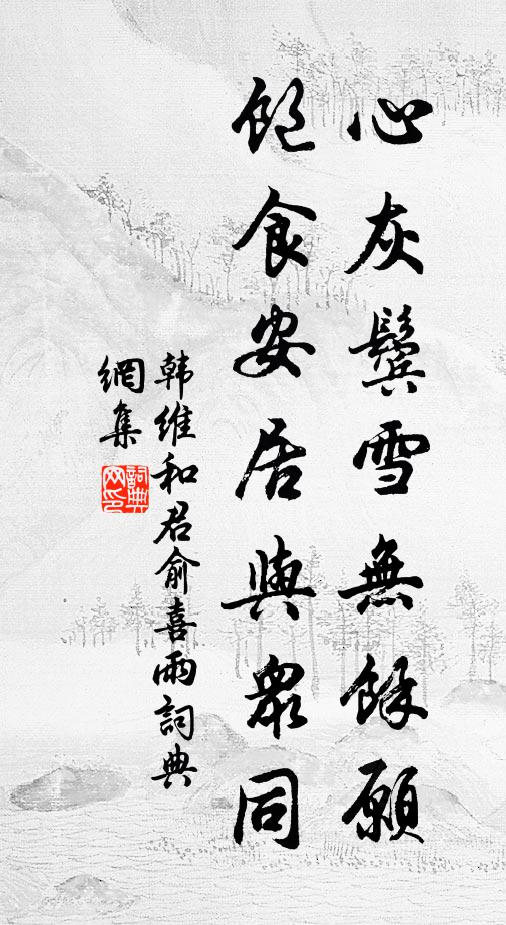 心灰鬢雪無餘願
飽食安居與眾同
韩維和君俞喜雨詞典
網集
詞典
网印